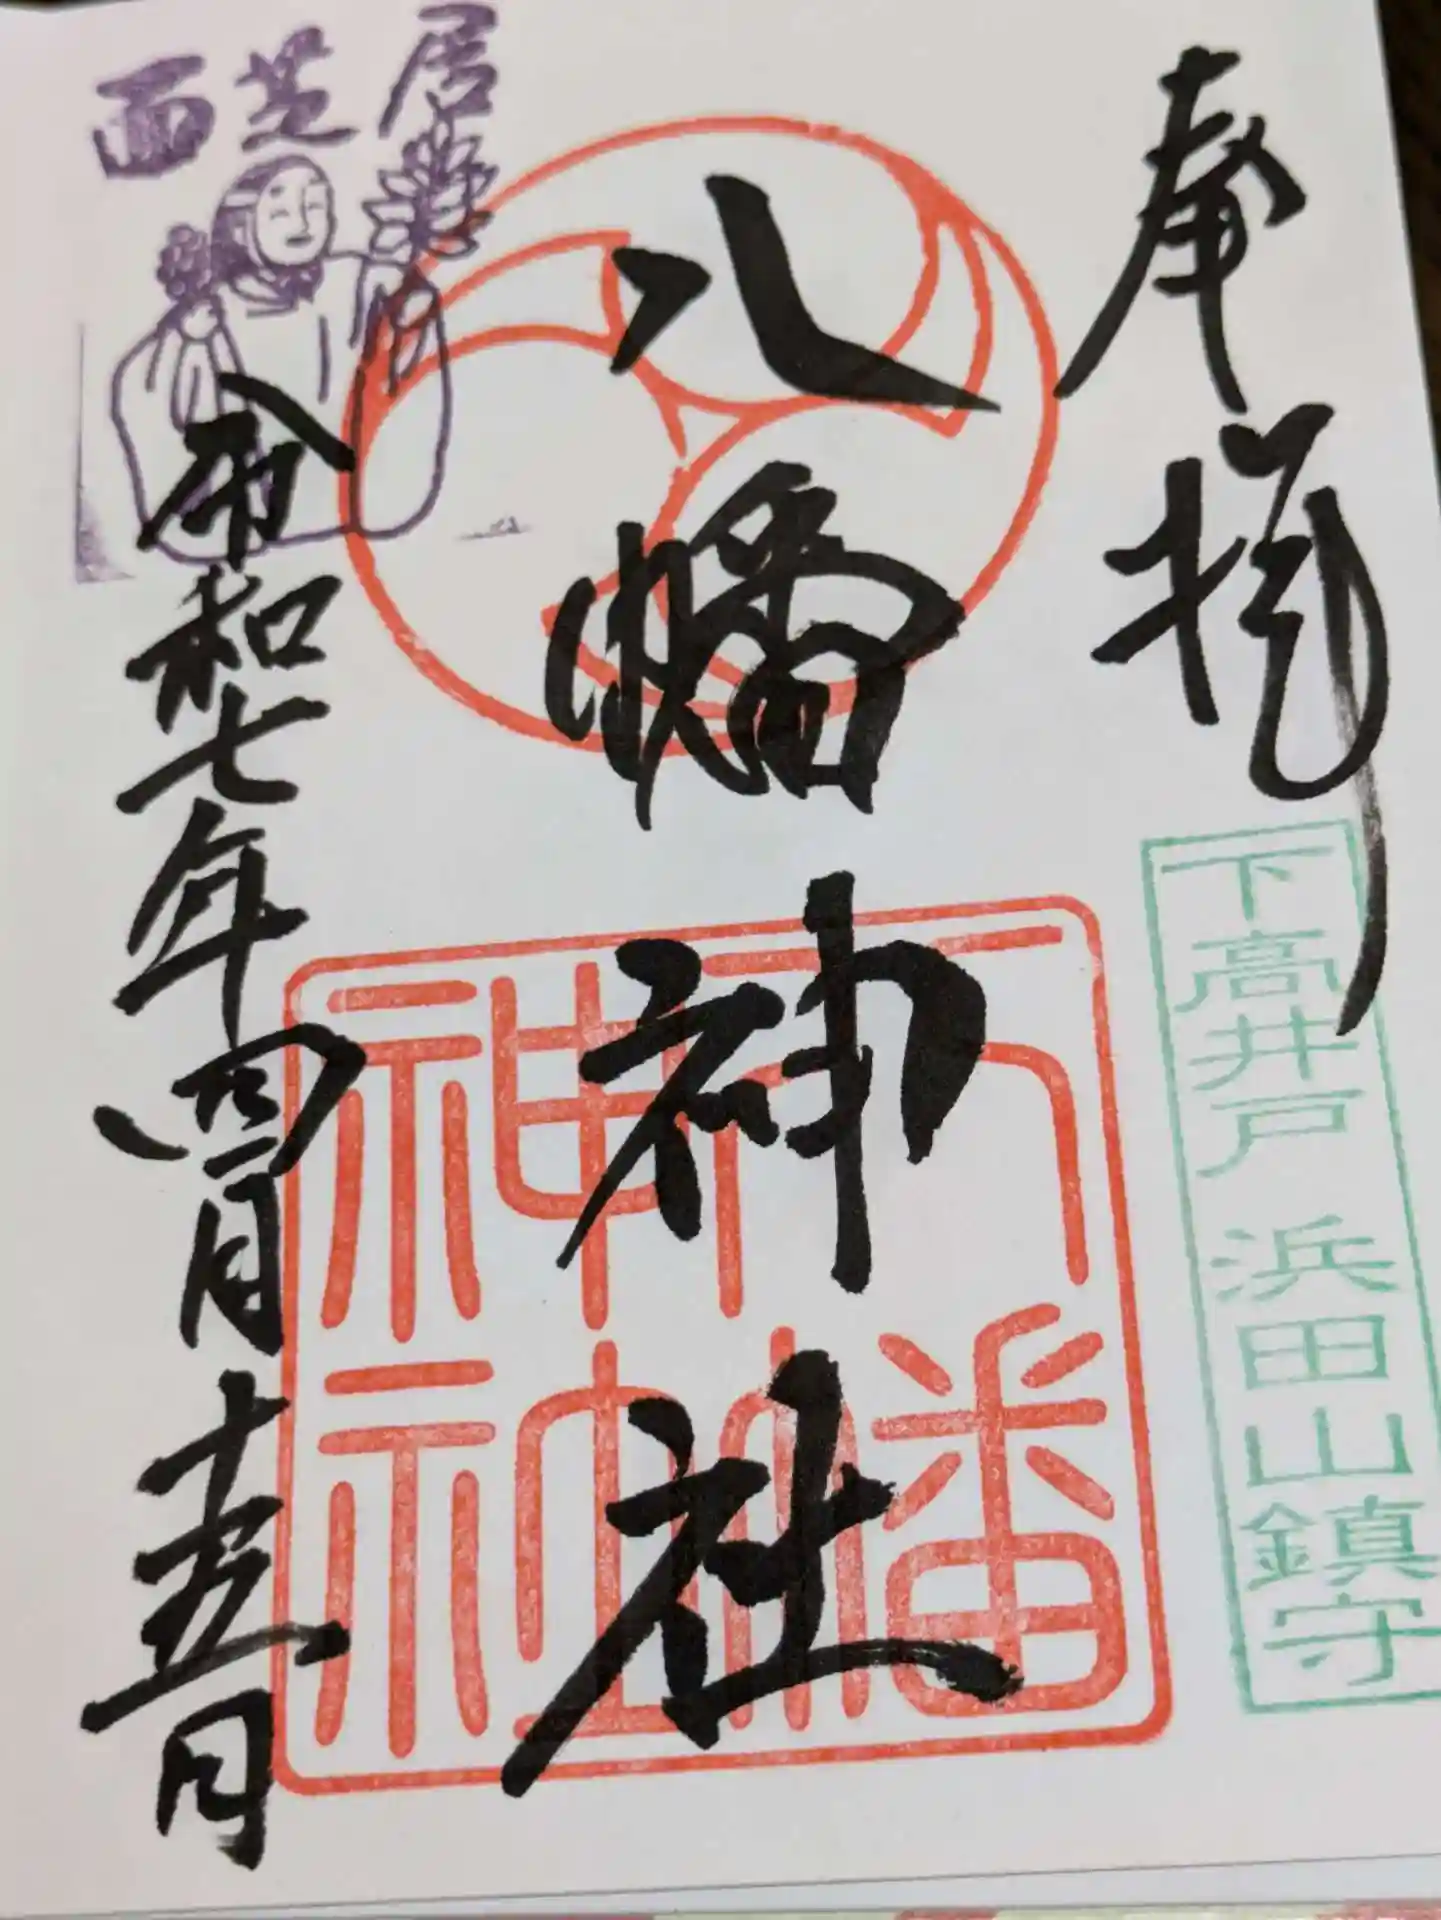 奉拝
下高井戸 浜田山鎮守
八幡神社
八幡
神社
面芝居
令和七年四月十五日